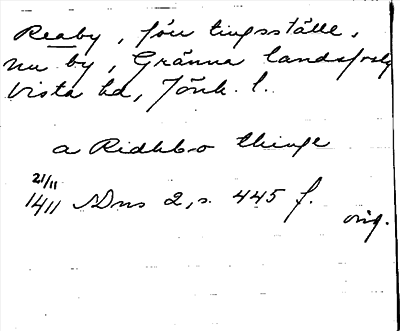 Reaby, förr tingsställe,
nu by, Gränna landsförs
Vista hd, Jönk. l.
a Ridhbo thinge
21/11
1411 SDns 2, s. 445 f.
orig.